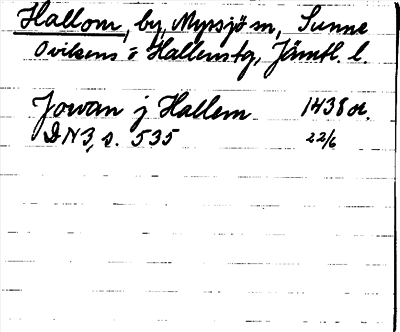 Hallom, by, Myssjö sn, Sunne
Ovikens o Hallens tg, Jämtl. l.
Jowan j Hallem 1438 or.
DN3, s. 535 22/6